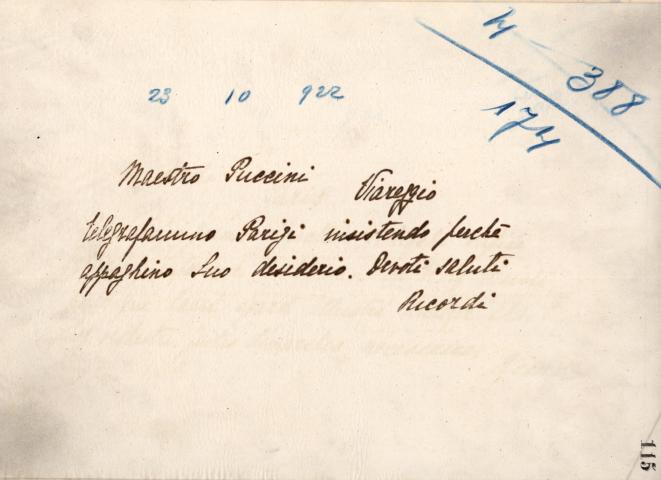 388
174
23 10 922
Maestro Puccini
Viareggio
telegrafammo Parigi insistendo perchè
appaghino Suo desiderio. Devoti saluti
Ricordi
115